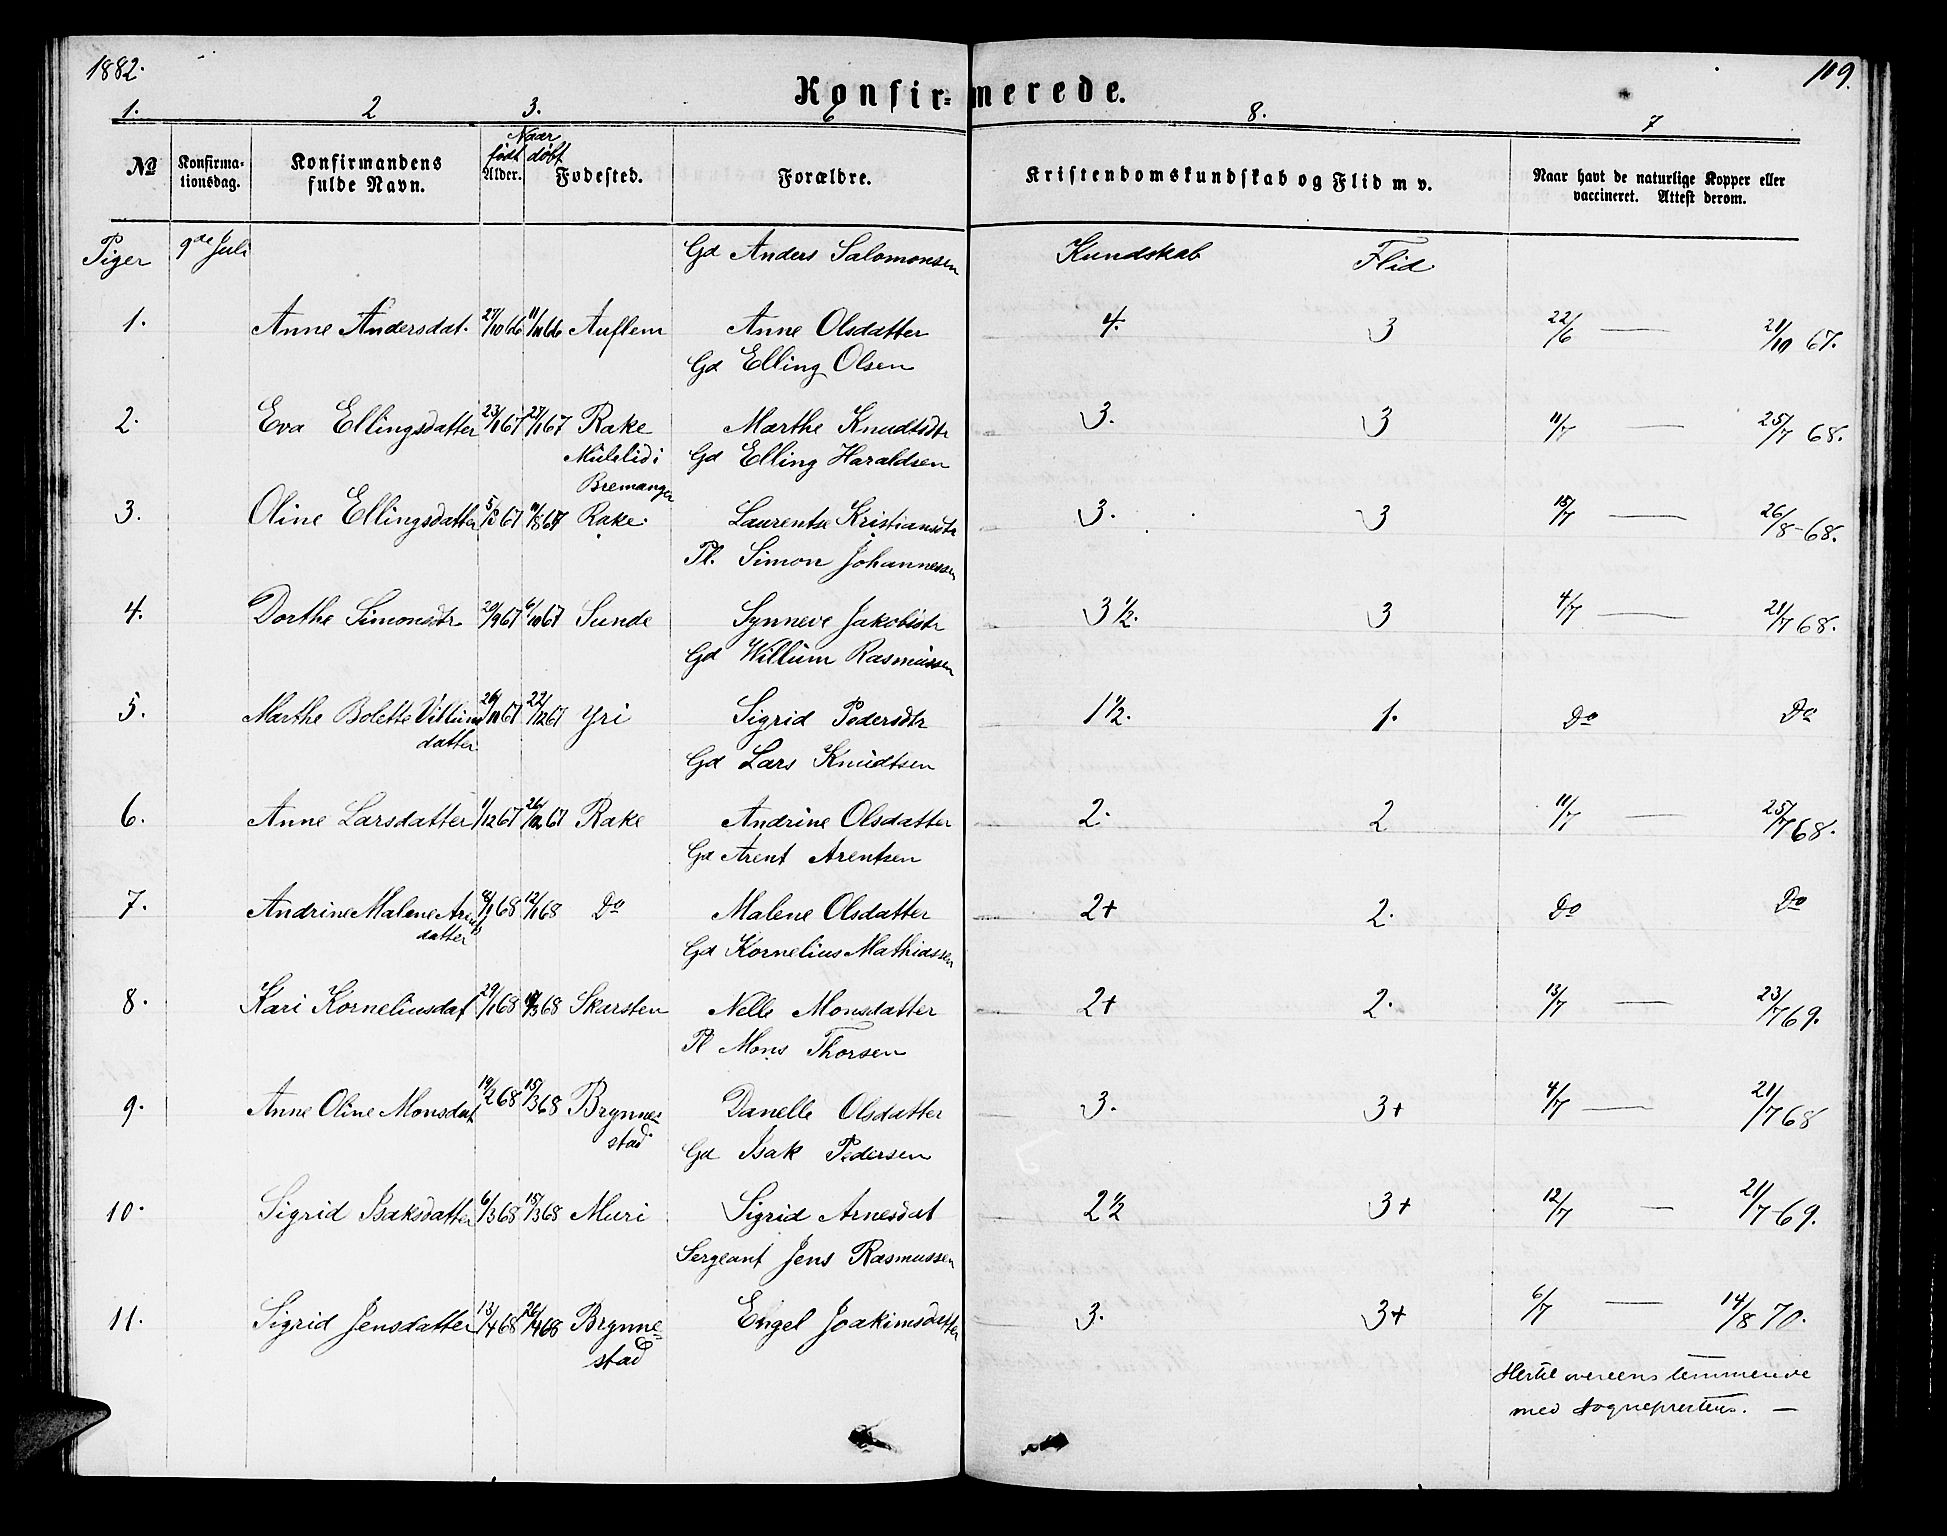 1882.
119.
Konfir=merede.
1. 2 3. 6 8. 7
Naar
født døbt
№ Konfirma=tionsdag. Konfirmandens fulde Navn. Alder. Fødested. Forældre. Kristendomskundskab og Flid m v. Naar havt de naturlige Kopper eller vaccineret. Attest derom.
Piger 9de Juli Gd Anders Salomonsen Kundskab Flid
1. Anne Andersdat. 27/10 66 11/11 66 Auflem Anne Olsdatter 4. 3 22/6 — 21/10 67.
Gd Elling Olsen
2. Eva Ellingsdatter 23/1 67 27/1 67 Rake Marthe Knudtsdtr 3. 3 11/7 — 25/7 68.
Mulelid i Gd Elling Haraldsen
Bremanger
3. Oline Ellingsdatter 5/3 67 11/8 67 Rake. Laurentse Kristiansdtr 3. 3 15/7 — 26/8-68.
Pl. Simon Johannessen
4. Dorthe Simonsdtr 20/9 67 6/10 67 Sunde Synneve Jakobsdtr 3 1/2. 3 4/7 — 21/7 68.
Gd Willum Rasmussen
5. Marthe Bolette Villums 26/11 67 22/12 67 Yri Sigrid Pedersdtr 1 1/2. 1. Do Do
datter
Gd Lars Knudtsen
6. Anne Larsdatter 1/12 67 26/12 67 Rake Andrine Olsdatter 2. 2 11/7 — 25/7 68.
Gd Arent Arentsen
7. Andrine Malene Arents 8/1 68 12/1 68 Do Malene Olsdatter 2+ 2. Do Do
datter
Gd Kornelius Mathiassen
8. Kari Korneliusdat 29/1 68 /3 68 Skarsten Nelle Monsdatter 2+ 2. 13/7 — 23/7 69.
Pl Mons Thorsen
9. Anne Oline Monsdat 19/2 68 15/3 68 Brynne= Danelle Olsdatter 3. 3+ 4/7 — 21/7 68
stad.
Gd Isak Pedersen
10. Sigrid Isaksdatter 6/3 68 15/3 68 Muri Sigrid Arnesdat 2 1/2 3+ 12/7 — 21/7-69.
Sergeant Jens Rasmussen
11. Sigrid Jensdatter 13/4 68 26/4 68 Brynne= Engel Joakimsdatter 3. 3+ 6/7 — 14/8 70.
stad
Hertil overeensstemmende
med Sogneprestens. —